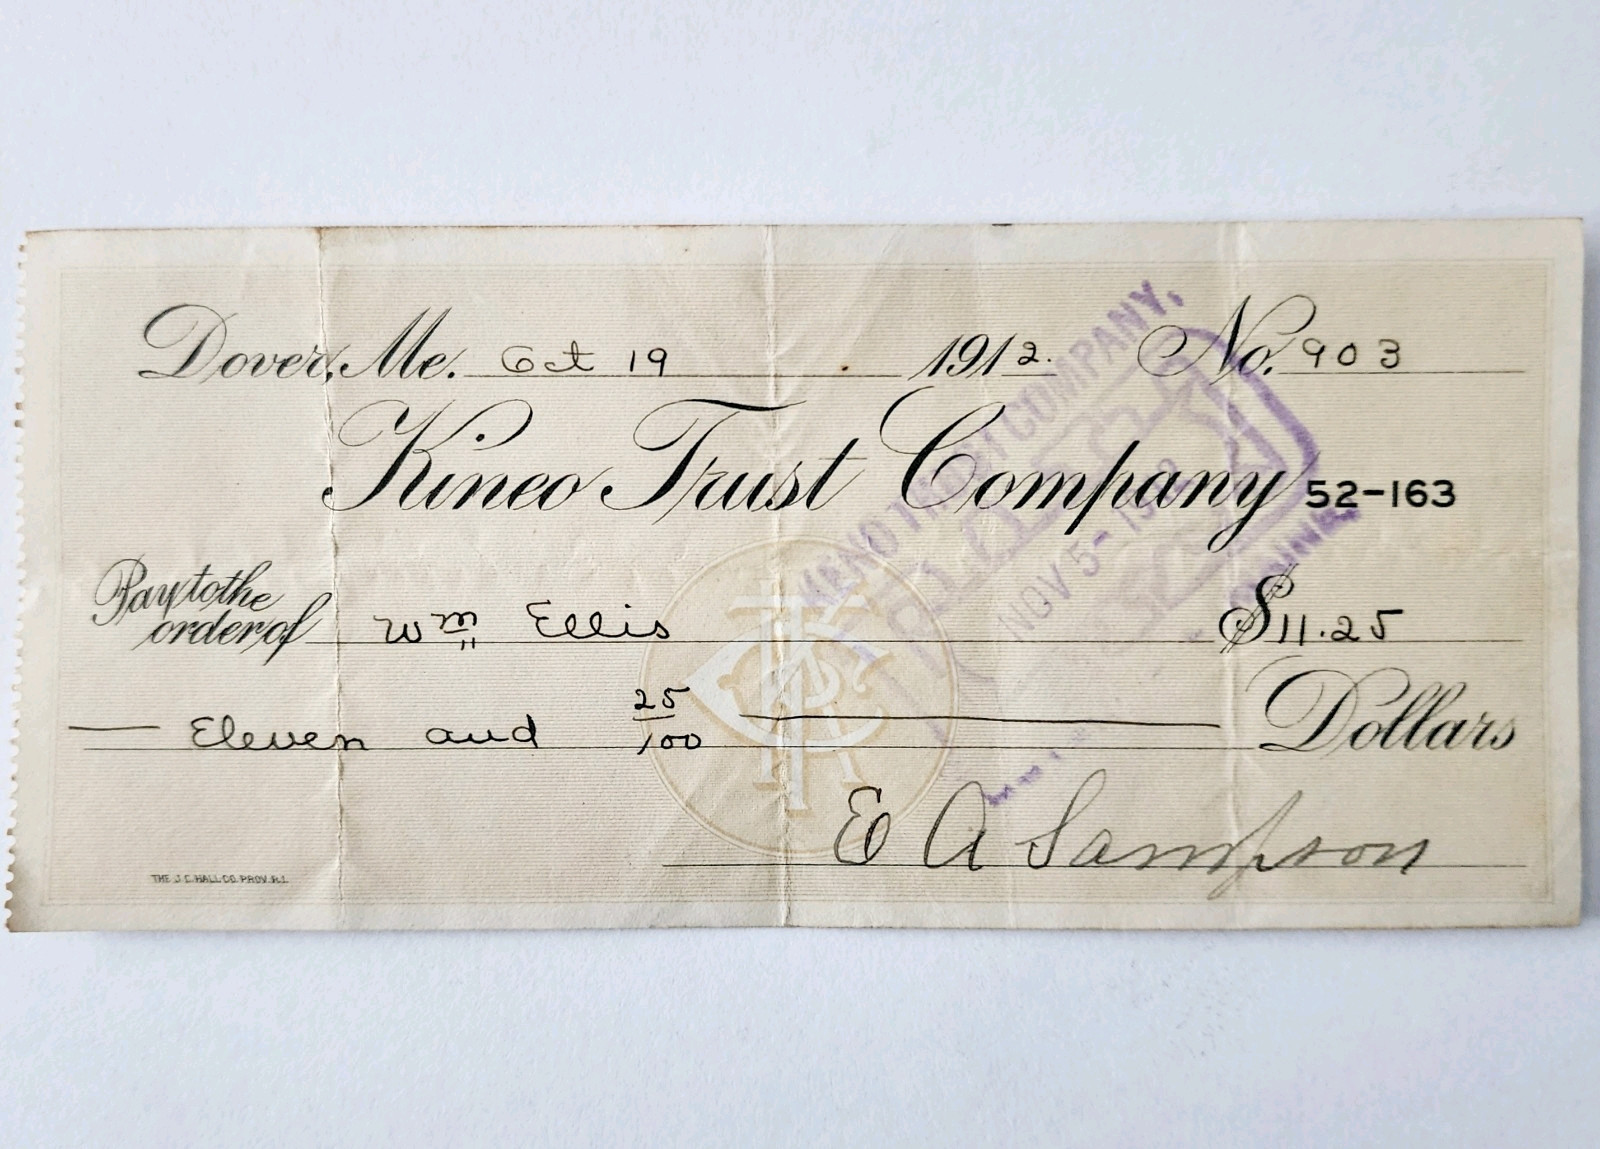 Dover, Me. Oct 19 1912. No. 903
Kineo Trust Company 52-163
Pay to the order of Wm Ellis $11.25
Eleven and 25/100 Dollars
E A Sampson
THE J.C. HALL CO. PROV. R.I.
COMPANY,
NOV 5 - 1912